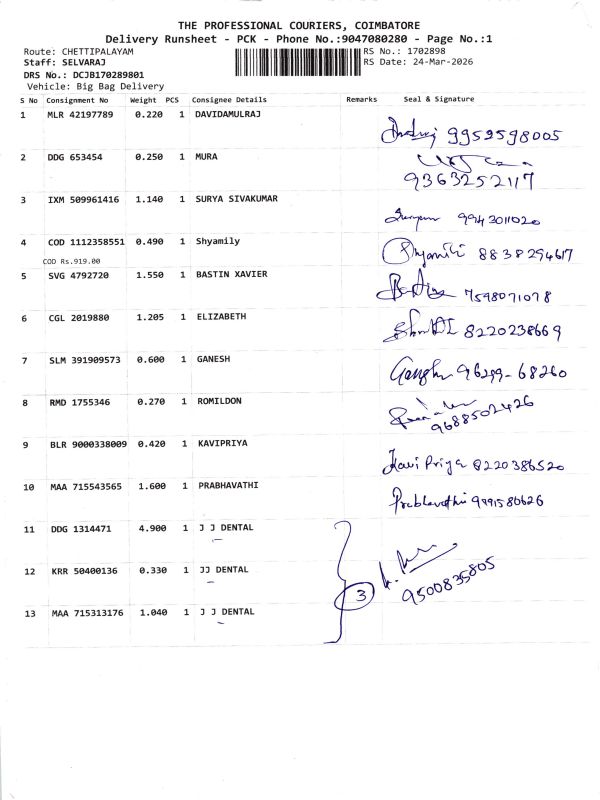 THE PROFESSIONAL COURIERS, COIMBATORE
Delivery Runsheet - PCK - Phone No.:9047080280 - Page No.:1
Route: CHETTIPALAYAM RS No.: 1702898
Staff: SELVARAJ RS Date: 24-Mar-2026
DRS No.: DCJB170289801
Vehicle: Big Bag Delivery
S No Consignment No Weight PCS Consignee Details Remarks Seal & Signature
1 MLR 42197789 0.220 1 DAVIDAMULRAJ
9952598005
2 DDG 653454 0.250 1 MURA
9363252117
3 IXM 509961416 1.140 1 SURYA SIVAKUMAR
9943011020
4 COD 1112358551 0.490 1 Shyamily
8838294617
COD Rs.919.00
5 SVG 4792720 1.550 1 BASTIN XAVIER
7598071078
6 CGL 2019880 1.205 1 ELIZABETH
8220238669
7 SLM 391909573 0.600 1 GANESH
96299-68260
8 RMD 1755346 0.270 1 ROMILDON
9688502426
9 BLR 9000338009 0.420 1 KAVIPRIYA
Kavi Priya 8220386520
10 MAA 715543565 1.600 1 PRABHAVATHI
Prabhavathi 9991580626
11 DDG 1314471 4.900 1 J J DENTAL
12 KRR 50400136 0.330 1 JJ DENTAL
3 9500835805
13 MAA 715313176 1.040 1 J J DENTAL